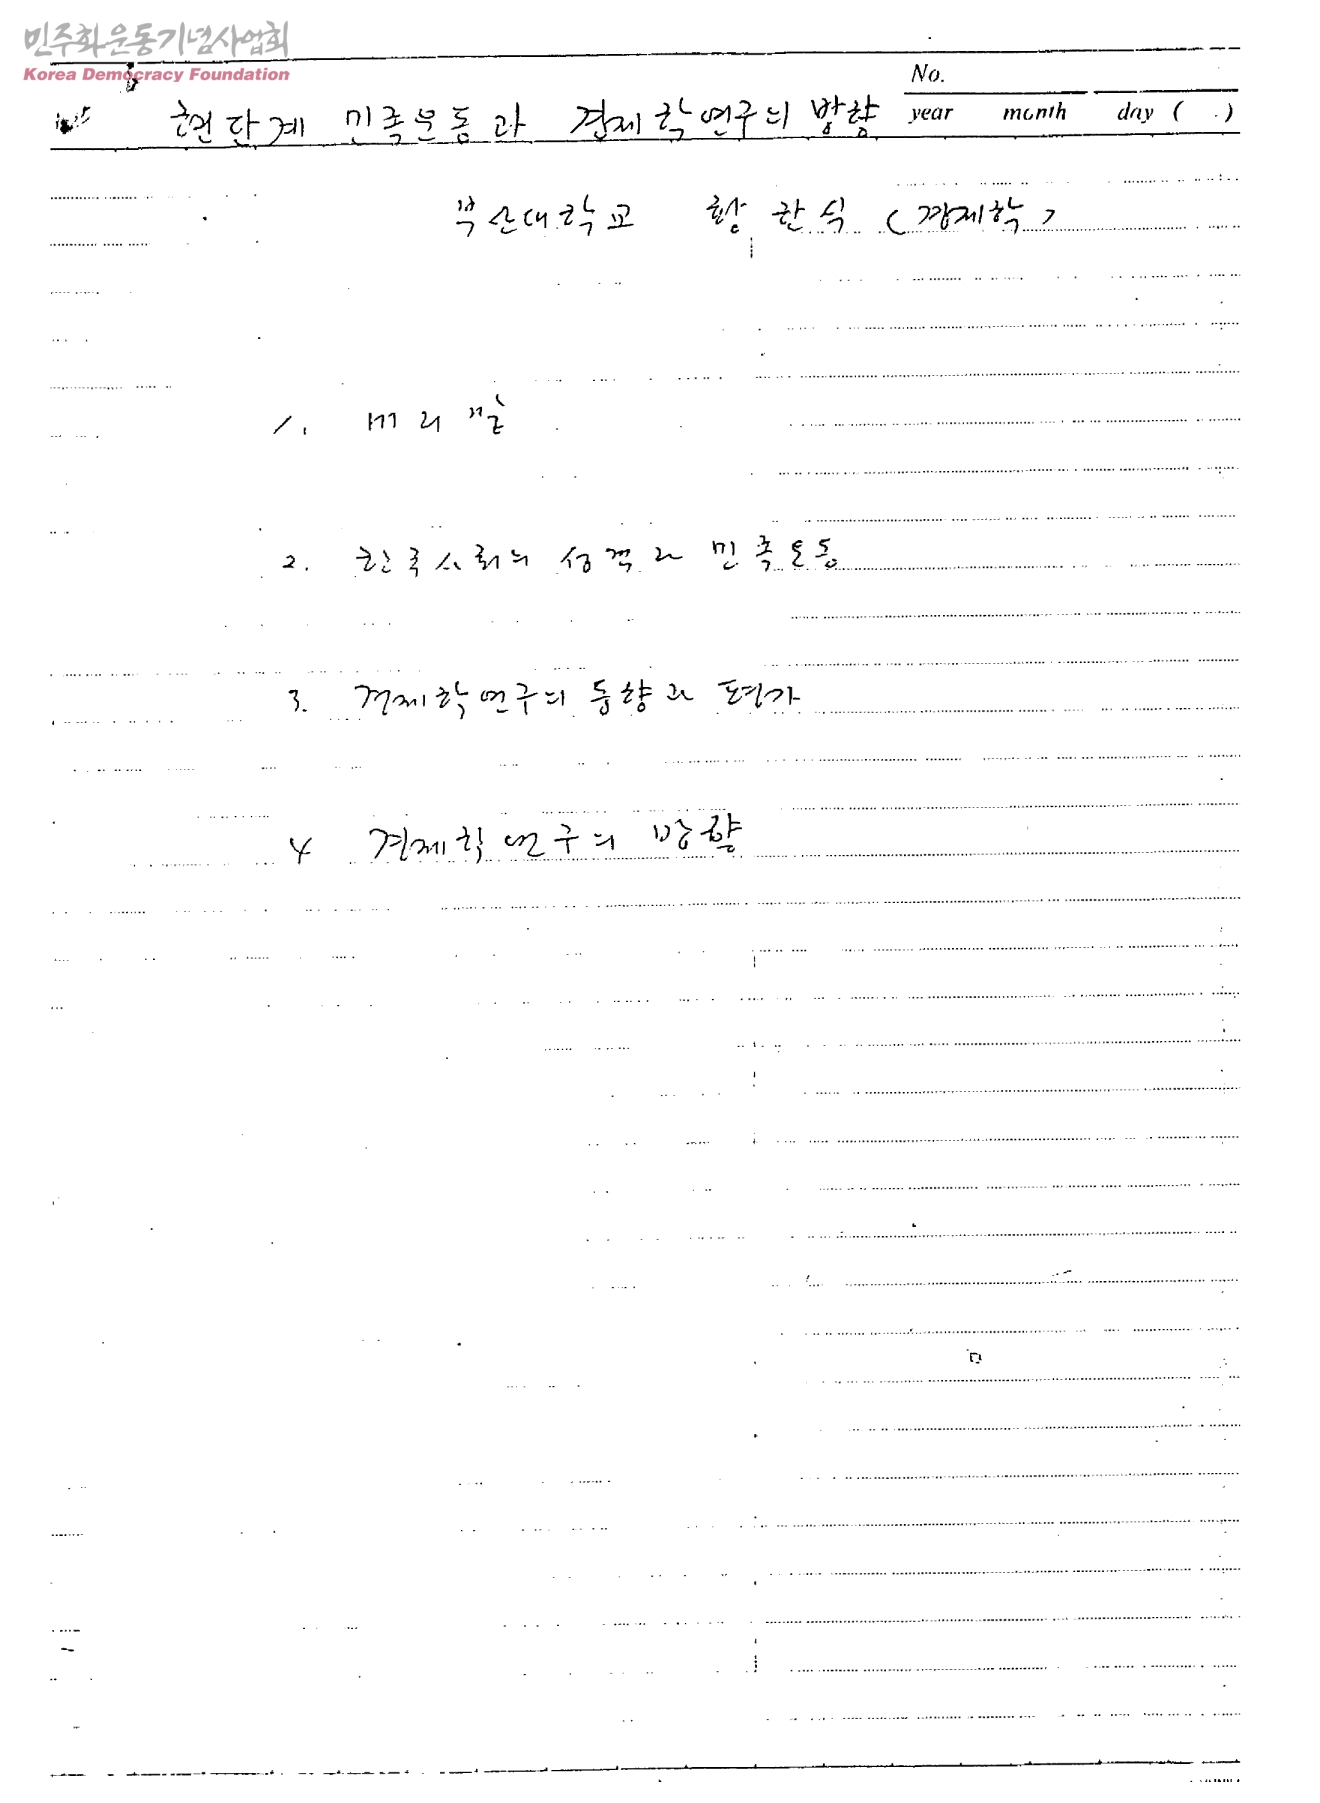 민주화운동기념사업회
Korea Democracy Foundation
No.
현단계 민족운동과 경제학연구의 방향
year month day ( . )
부산대학교 황한식 (경제학)
1. 머리말
2. 한국사회의 성격과 민족운동
3. 경제학연구의 동향과 평가
4 경제학연구의 방향